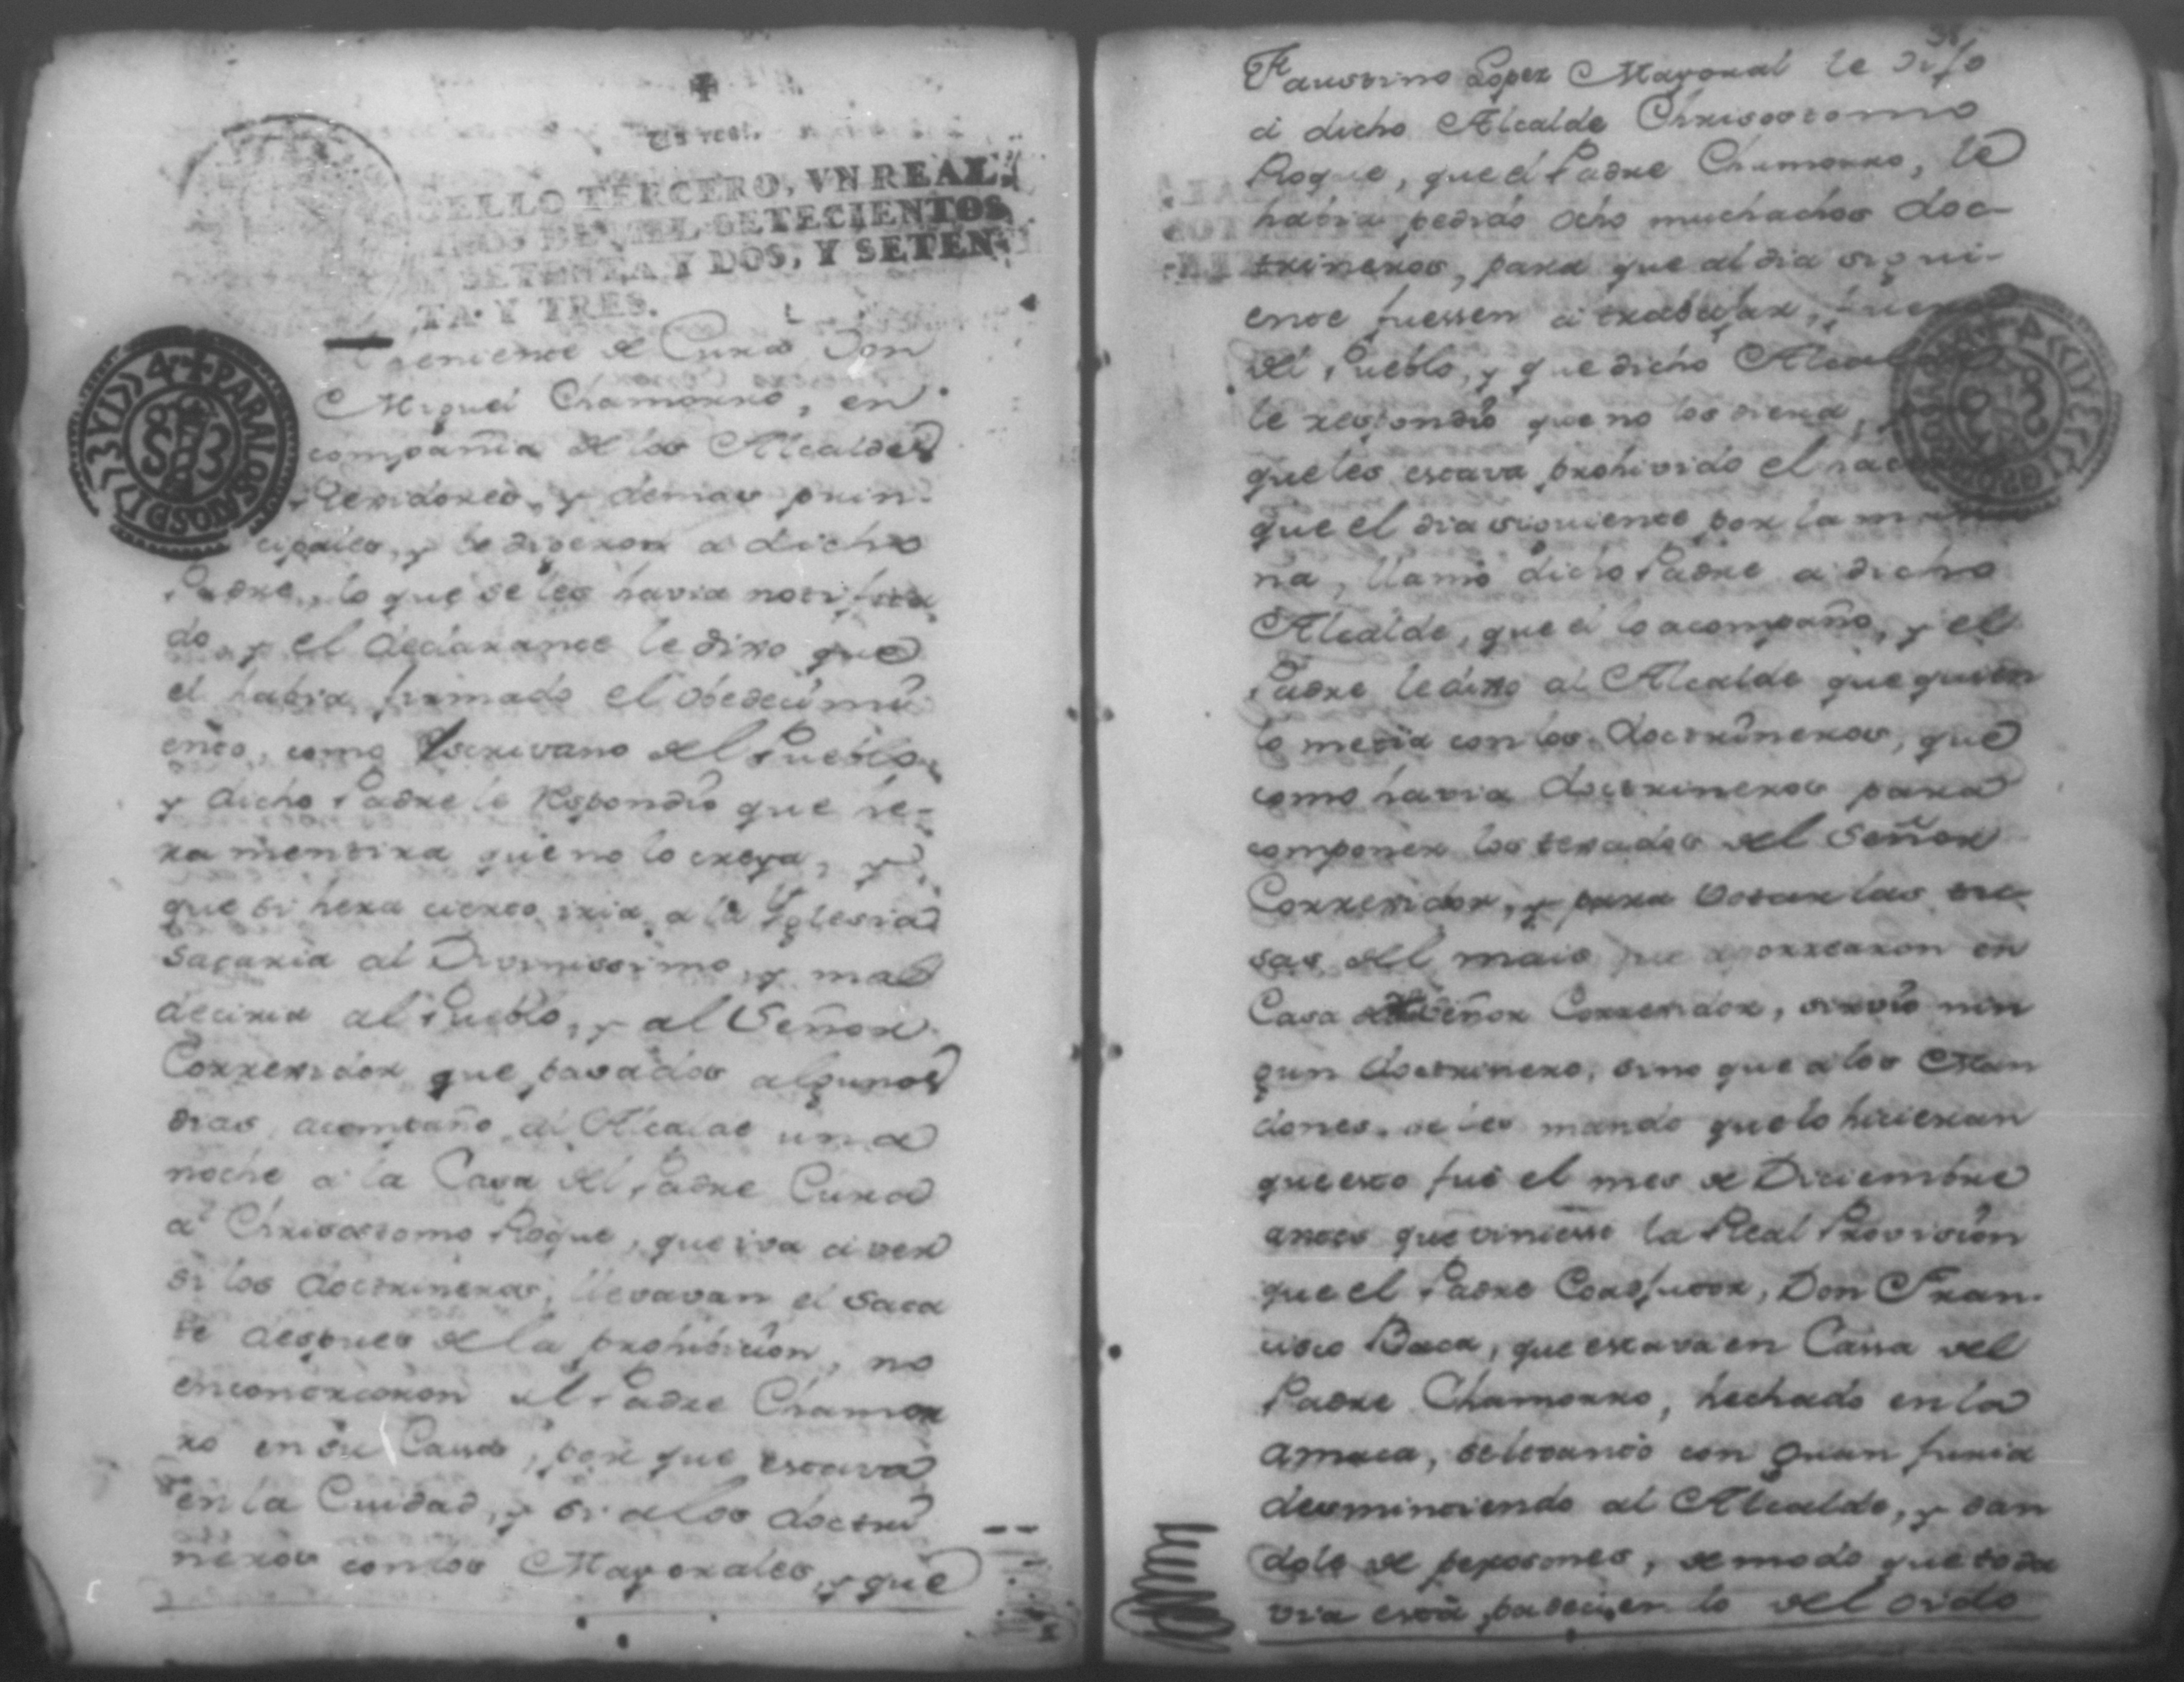 Vn real.
SELLO TERCERO, VN REAL,
AÑOS DE MIL SETECIENTOS
SETENTA Y DOS, Y SETEN-
TA Y TRES.
PARA LOS AÑOS D 1773 Y 1774
Theniente de Cura Don
Miguel Chamorro, en
compañia de los Alcaldes
Regidores, y demas prin-
cipales, y le digeron a dicho
Padre, lo que se les havia notifica
do, y el declarante le dixo que
el habia firmado el obedecimi
ento, como Escrivano del Pueblo,
y dicho Padre le Respondió que he-
ra mentira que no lo creya, y
que si hera cierto iria a la Yglesia
sacaria al Divinissimo, y mal
deciria al Pueblo, y al Señor
Corregidor que pasados algunos
dias, acompaño al Alcalde una
noche a la Casa del Padre Cura
a Chrisostomo Roque, que iva a ver
si los doctrineros, llevavan el Saca
te despues de la prohibicion, no
encontraron al Padre Chamor
ro en su Cassa, por que estava
en la Cuidad, y si a los doctri
neros con los Mayorales, y que
Faustino Lopez Mayoral le dijo
a dicho Alcalde Chrisostomo
Roque, que el Padre Chamorro, le
habia pedido ocho muchachos doc-
trineros, para que al dia sigui-
ente fuessen a trabajar,
del Pueblo, y que dicho Alcalde
le respondió que no los diera,
que les estava prohivido el
que el dia siguiente por la maña
na, llamó dicho Padre a dicho
Alcalde, que el lo acompaño, y el
Padre le dixo al Alcalde que quien
lo metia con los doctrineros, que
como havia doctrineros para
componer los texados del Señor
Corregidor, y para
sas del mais que aporrearon en
Casa del Señor Corregidor, sirvió nin
gun doctrinero, sino que a los Man
dones, se les mando que lo hicieran
que esto fué el mes de Diciembre
antes que viniesse la Real Provision
que el Padre Coadjutor, Don Fran-
cisco Baca, que estava en Cassa del
Padre Chamorro, hechado en la
amaca, se levantó con gran furia
desmintiendo al Alcalde, y dan
dole de pescosones, de modo que toda
via está padeciendo del oido